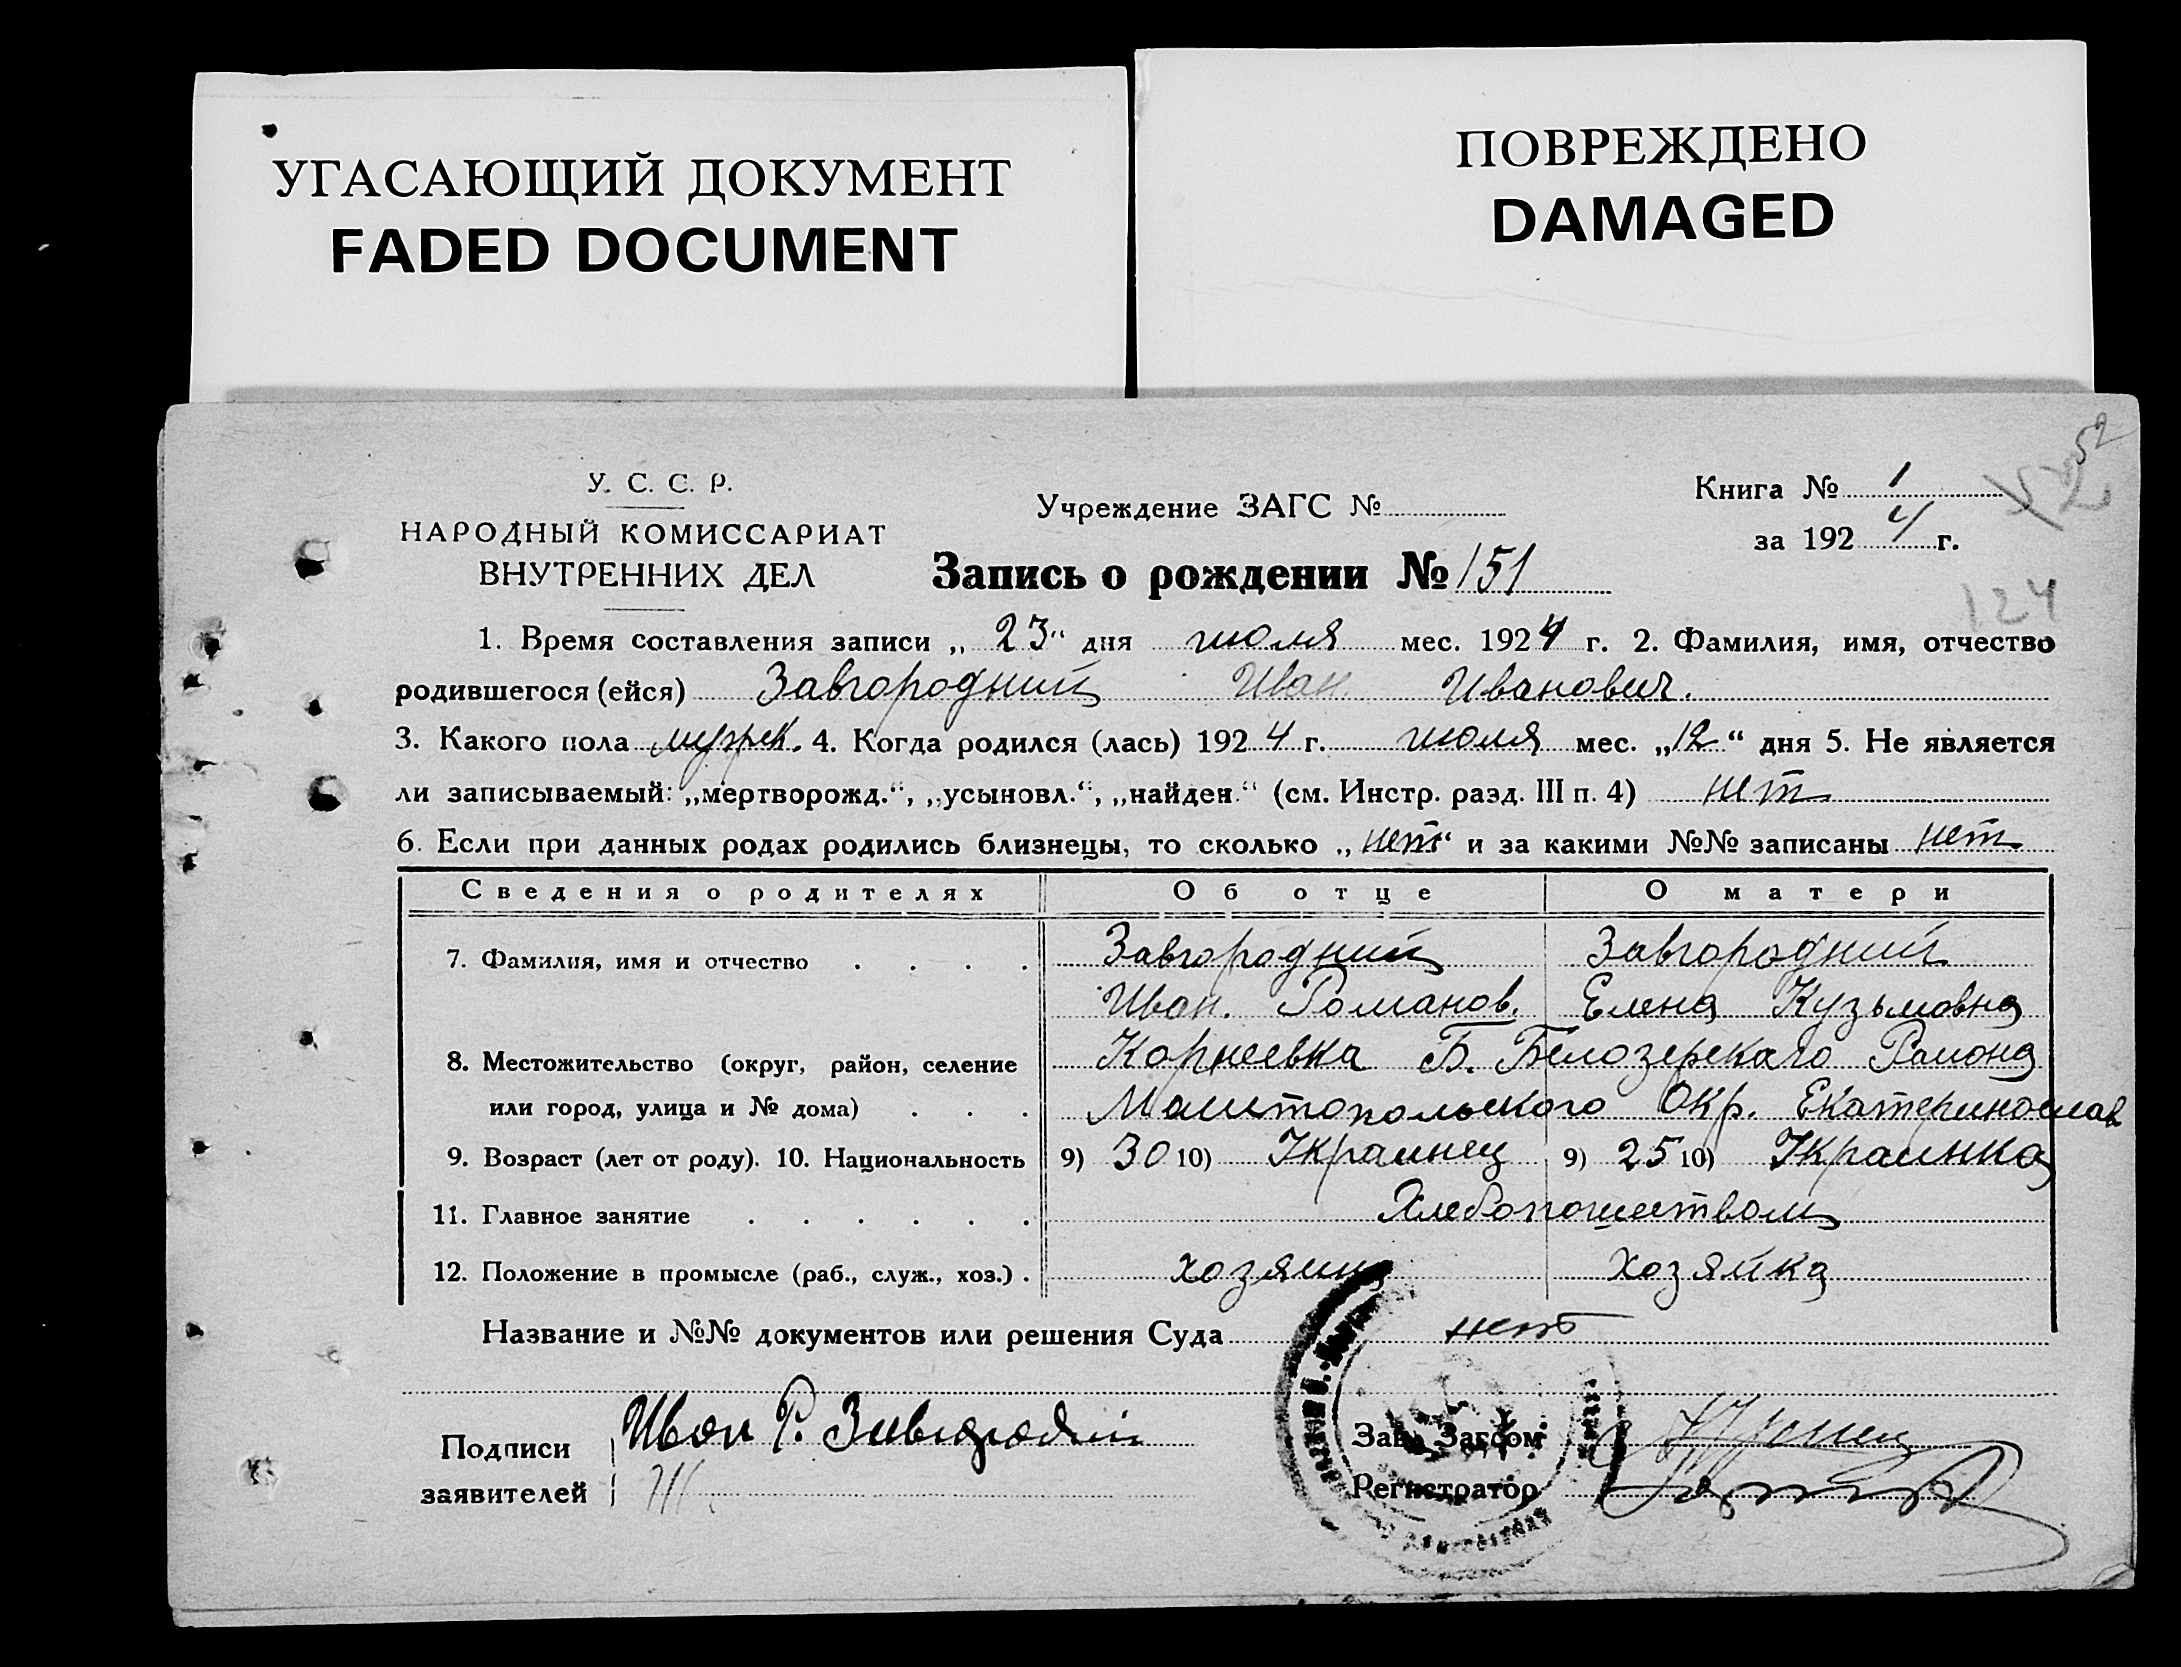 УГАСАЮЩИЙ ДОКУМЕНТ
FADED DOCUMENT
ПОВРЕЖДЕНО
DAMAGED
52
У. С. С. Р.
НАРОДНЫЙ КОМИССАРИАТ
ВНУТРЕННИХ ДЕЛ
Учреждение ЗАГС №
Книга № 1
за 1924 г.
Запись о рождении № 151
124
1. Время составления записи „23“ дня июля мес. 1924 г. 2. Фамилия, имя, отчество
родившегося (ейся) Завгородний Иван Иванович.
3. Какого пола мужск. 4. Когда родился (лась) 1924 г. июля мес. „12“ дня 5. Не является
ли записываемый: „мертворожд.“, „усыновл.“, „найден.“ (см. Инстр. разд. III п. 4) нет
6. Если при данных родах родились близнецы, то сколько „нет“ и за какими №№ записаны нет
Сведения о родителях Об отце О матери
7. Фамилия, имя и отчество . . . . Завгородний Завгородний
Иван. Романов. Елена Кузьмовна
8. Местожительство (округ, район, селение Корнеевка Б. Белозерскаго Района
или город, улица и № дома) . . . Мелитопольского Окр. Екатеринослав
9. Возраст (лет от роду). 10. Национальность 9) 30 10) Украинец 9) 25 10) Украинка
11. Главное занятие . . . . . . Хлебопашеством
12. Положение в промысле (раб., служ., хоз.) . хозяин хозяйка
Название и №№ документов или решения Суда нет
Подписи Иван Р. Завгородній
заявителей
Зав. Загсом
Регистратор